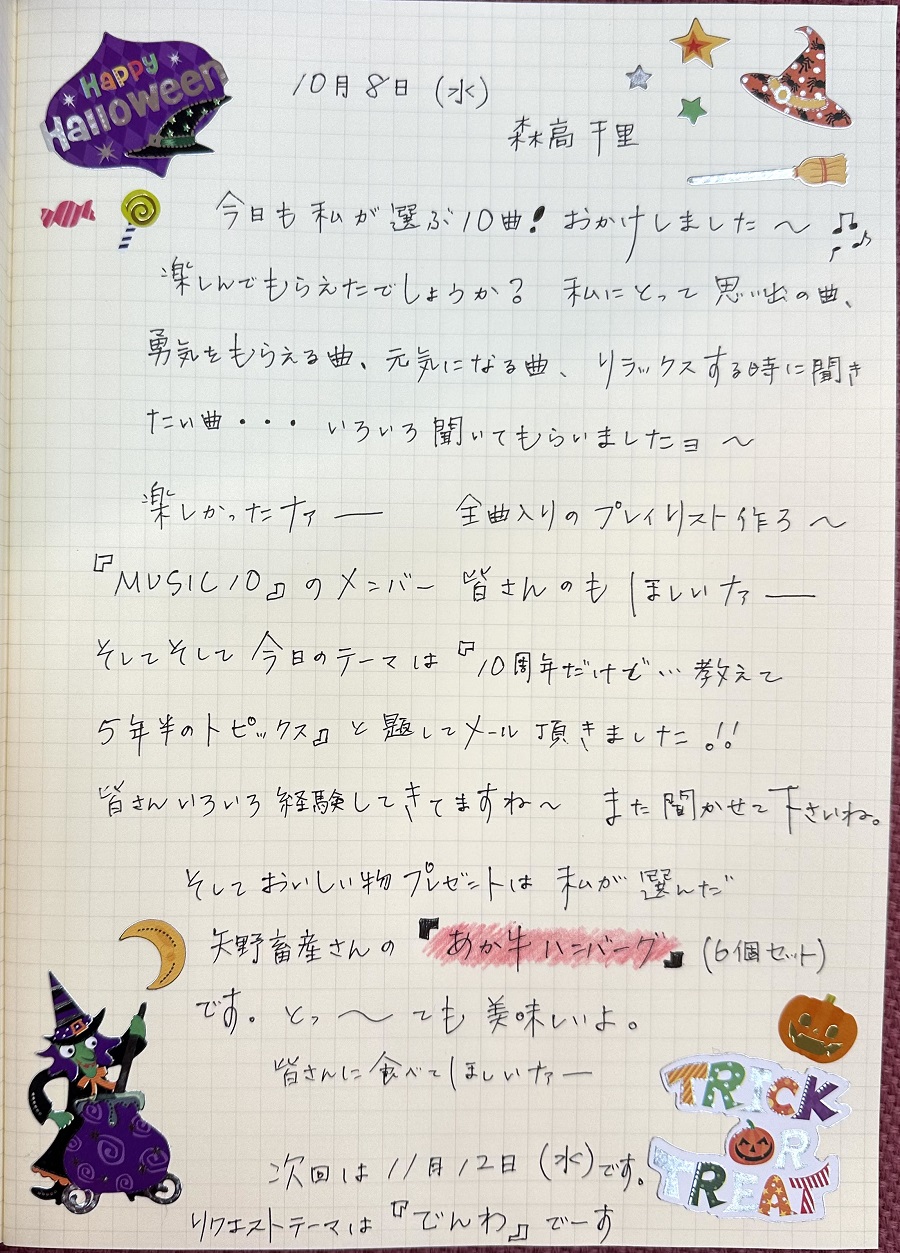 Happy
Halloween
10月8日(水)
森高千里
今日も私が選ぶ10曲!おかけしました〜♫♪
楽しんでもらえたでしょうか? 私にとって思い出の曲、
勇気をもらえる曲、元気になる曲、リラックスする時に聞き
たい曲・・・いろいろ聞いてもらいましたヨ〜
楽しかったナァ― 全曲入りのプレイリスト作ろ〜
『MUSIC10』のメンバー皆さんのもほしいナァ―
そしてそして今日のテーマは『10周年だけど…教えて
5年半のトピックス』と題してメール頂きました。!!
皆さんいろいろ経験してきてますね〜 また聞かせて下さいね。
そしておいしい物プレゼントは私が選んだ
矢野畜産さんの『あか牛ハンバーグ』(6個セット)
です。とっ〜ても美味しいよ。
皆さんに食べてほしいナァ―
TRICK
OR
TREAT
次回は11月12日(水)です。
リクエストテーマは『でんわ』でーす